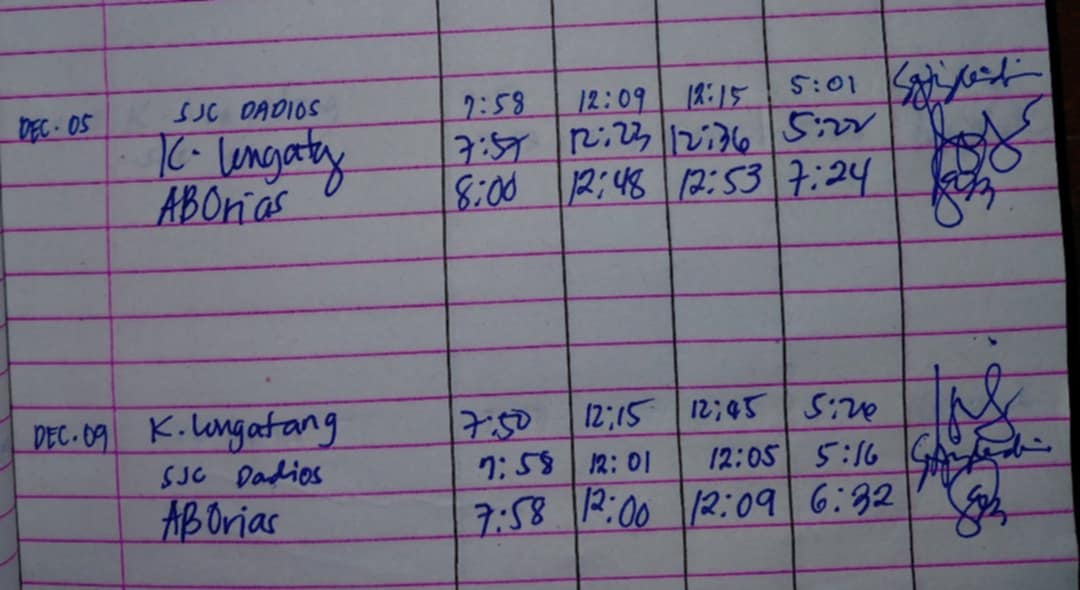 DEC. 05 SJC DADIOS 7:58 12:09 12:15 5:01
K. Lungatang 7:57 12:23 12:36 5:22
ABOrias 8:00 12:48 12:53 7:24
DEC. 09 K. Lungatang 7:50 12:15 12:45 5:20
SJC Dadios 7:58 12:01 12:05 5:16
ABOrias 7:58 12:00 12:09 6:32